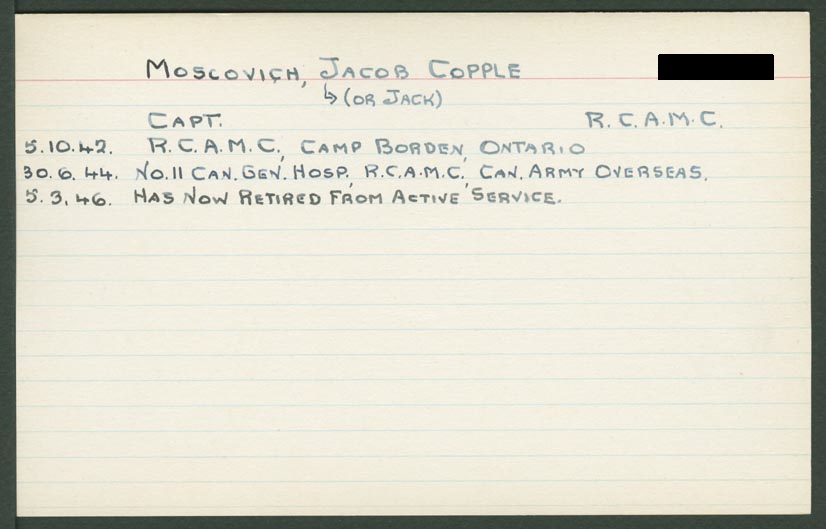 Moscovich, Jacob Copple
↳ (or Jack)
Capt. R.C.A.M.C.
5.10.42. R.C.A.M.C., Camp Borden, Ontario
30.6.44. No.11 Can. Gen. Hosp., R.C.A.M.C., Can. Army Overseas.
5.3.46. Has Now Retired From Active Service.